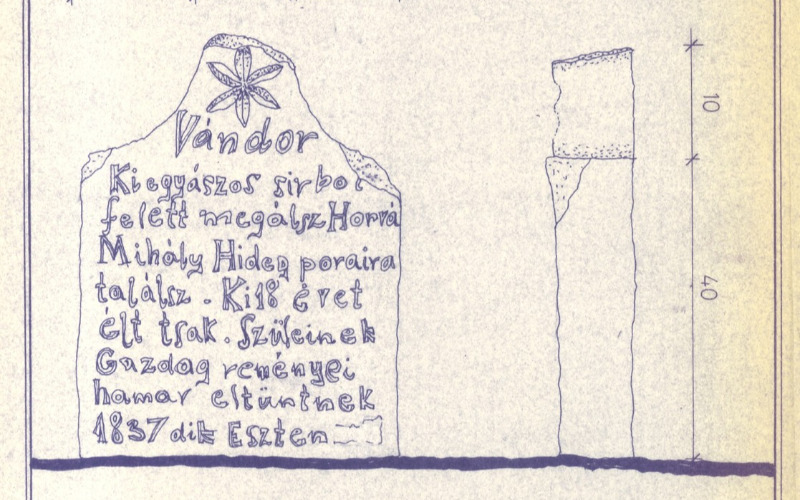 Vándor
Ki egyászos sirbo
felett megálsz Horvá
Mihály Hideg poraira
találsz . Ki 18 évet
élt tsak . Szüleinek
Gazdag reményei
hamar eltüntnek
1837 dik Eszten
10
40